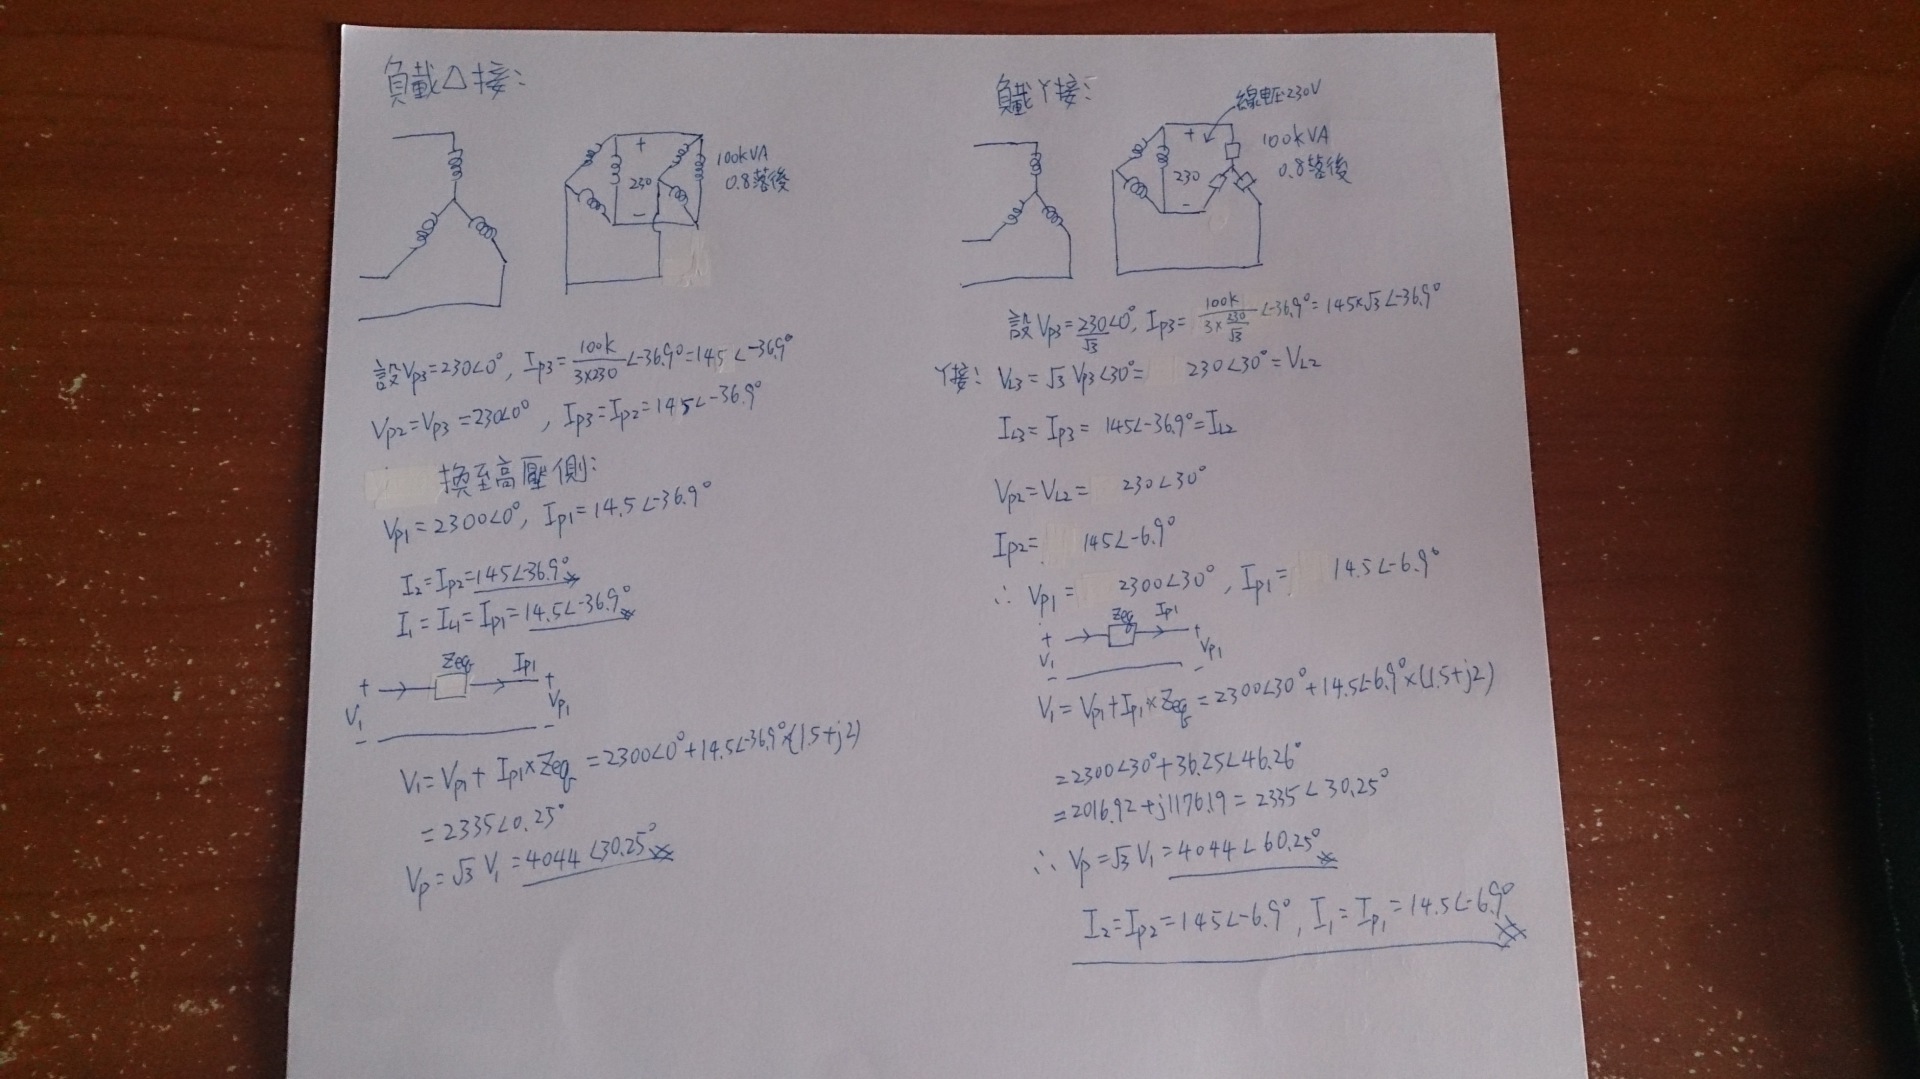 負載△接:
+
230
-
100kVA
0.8落後
設Vp3=230∠0°, Ip3=100k/3×230∠-36.9°=145∠-36.9°
Vp2=Vp3=230∠0°, Ip3=Ip2=145∠-36.9°
換至高壓側:
Vp1=2300∠0°, Ip1=14.5∠-36.9°
I2=Ip2=145∠-36.9°
I1=IL1=Ip1=14.5∠-36.9°
Zeq Ip1
+ +
V1 Vp1
- -
V1=Vp1+Ip1×Zeq=2300∠0°+14.5∠-36.9°×(1.5+j2)
=2335∠0.25°
Vp=√3 V1=4044∠30.25°
負載Y接:
線电压230V
+
230
-
100kVA
0.8落後
設Vp3=230/√3∠0°, Ip3=100k/3×230/√3∠-36.9°=145×√3∠-36.9°
Y接: VL3=√3 Vp3∠30°=230∠30°=VL2
IL3=Ip3=145∠-36.9°=IL2
Vp2=VL2=230∠30°
Ip2=145∠-6.9°
∴ Vp1=2300∠30°, Ip1=14.5∠-6.9°
Zeq Ip1
+ +
V1 Vp1
- -
V1=Vp1+Ip1×Zeq=2300∠30°+14.5∠-6.9°×(1.5+j2)
=2300∠30°+36.25∠46.26°
=2016.92+j1176.19=2335∠30.25°
∴ Vp=√3 V1=4044∠60.25°
I2=Ip2=145∠-6.9°, I1=Ip1=14.5∠-6.9°